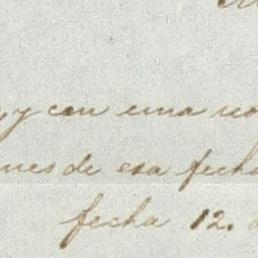 y con una
mes de esa fecha
fecha 12.